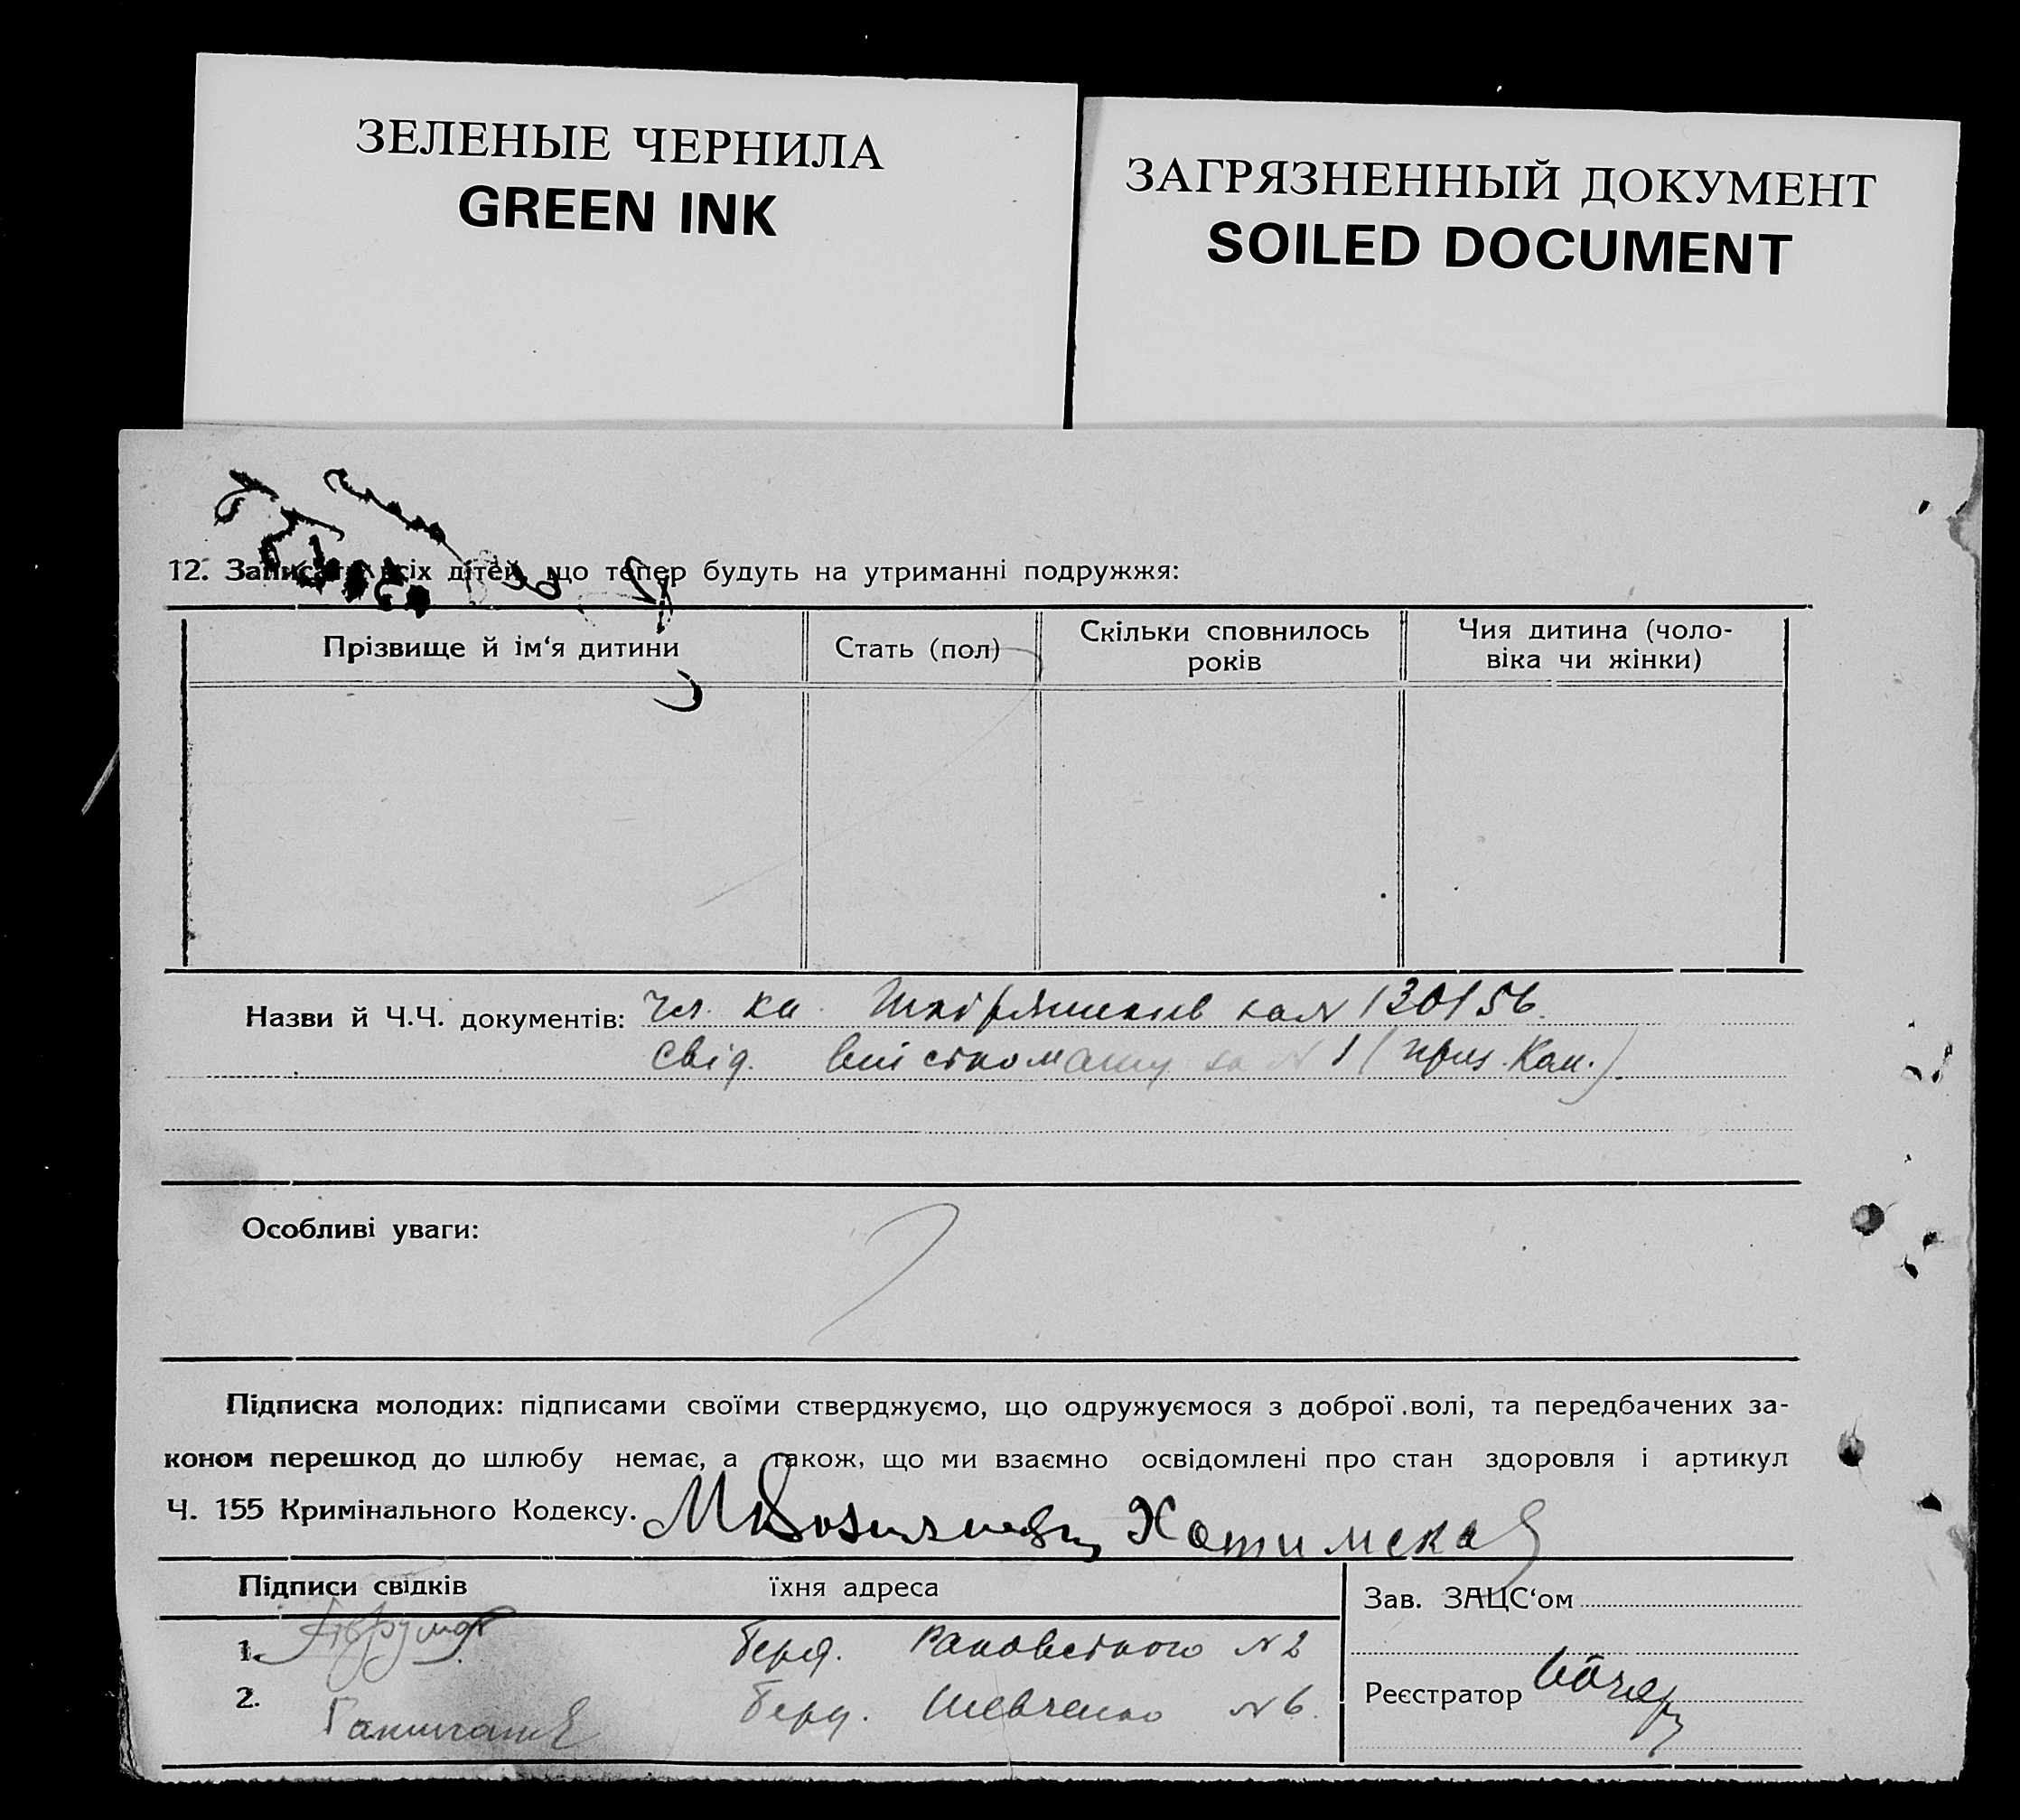 ЗЕЛЕНЫЕ ЧЕРНИЛА
GREEN INK
ЗАГРЯЗНЕННЫЙ ДОКУМЕНТ
SOILED DOCUMENT
12. Записати всіх дітей, що тепер будуть на утриманні подружжя:
Прізвище й ім‘я дитини
Стать (пол)
Скільки сповнилось
років
Чия дитина (чоло-
віка чи жінки)
Назви й Ч.Ч. документів: чл. кн. за № 130156.
свід. № 1 (
Особливі уваги:
Підписка молодих: підписами своїми стверджуємо, що одружуємося з доброї волі, та передбачених за-
коном перешкод до шлюбу немає, а також, що ми взаємно освідомлені про стан здоровля і артикул
Ч. 155 Кримінального Кодексу. Хотимская
Підписи свідків
їхня адреса
Зав. ЗАЦС‘ом
1. Берд. Раковського № 2
2. Берд. Шевченко № 6.
Реєстратор